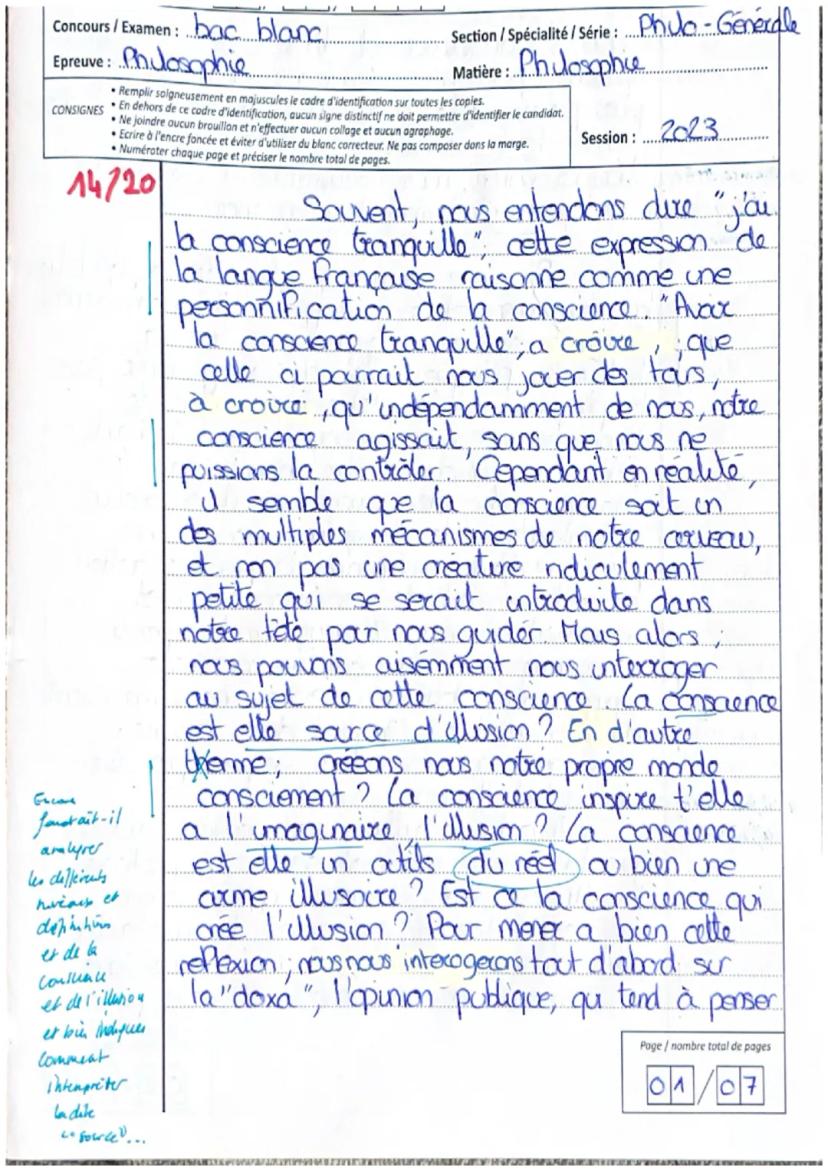 Concours / Examen : bac blanc
Section / Spécialité / Série : Philo - Générale
Epreuve : Philosophie
Matière : Philosophie
CONSIGNES
• Remplir soigneusement en majuscules le cadre d'identification sur toutes les copies.
• En dehors de ce cadre d'identification, aucun signe distinctif ne doit permettre d'identifier le candidat.
• Ne joindre aucun brouillon et n'effectuer aucun collage et aucun agraphage.
• Ecrire à l'encre foncée et éviter d'utiliser du blanc correcteur. Ne pas composer dans la marge.
• Numéroter chaque page et préciser le nombre total de pages.
Session : 2023
14/20
Souvent, nous entendons dire "j'ai
la conscience tranquille", cette expression de
la langue française raisonne comme une
personnification de la conscience. "Avoir
la conscience tranquille", a croire, que
celle ci pourrait nous jouer des tours,
à croire, qu'indépendamment de nous, notre
conscience agissait, sans que nous ne
puissions la contrôler. Cependant en réalité,
il semble que la conscience soit un
des multiples mécanismes de notre cerveau,
et non pas une créature ridiculement
petite qui se serait introduite dans
notre tête pour nous guider. Mais alors,
nous pouvons aisemment nous interroger
au sujet de cette conscience. La conscience
est elle source d'illusion ? En d'autre
therme, créeons nous notre propre monde
consciement ? La conscience inspire t'elle
a l'imaginaire, l'illusion ? La conscience
est elle un outils du réel ou bien une
arme illusoire ? Est ce la conscience qui
crée l'illusion ? Pour mener a bien cette
réflexion, nous nous interogerons tout d'abord sur
la "doxa", l'opinion publique, qui tend à penser
Encore
faudrait-il
analyser
les différents
niveaux et
définitions
et de la
conscience
et de l'illusion
et bien indiquer
comment
interpréter
la dite
"source"...
Page / nombre total de pages
01 / 07